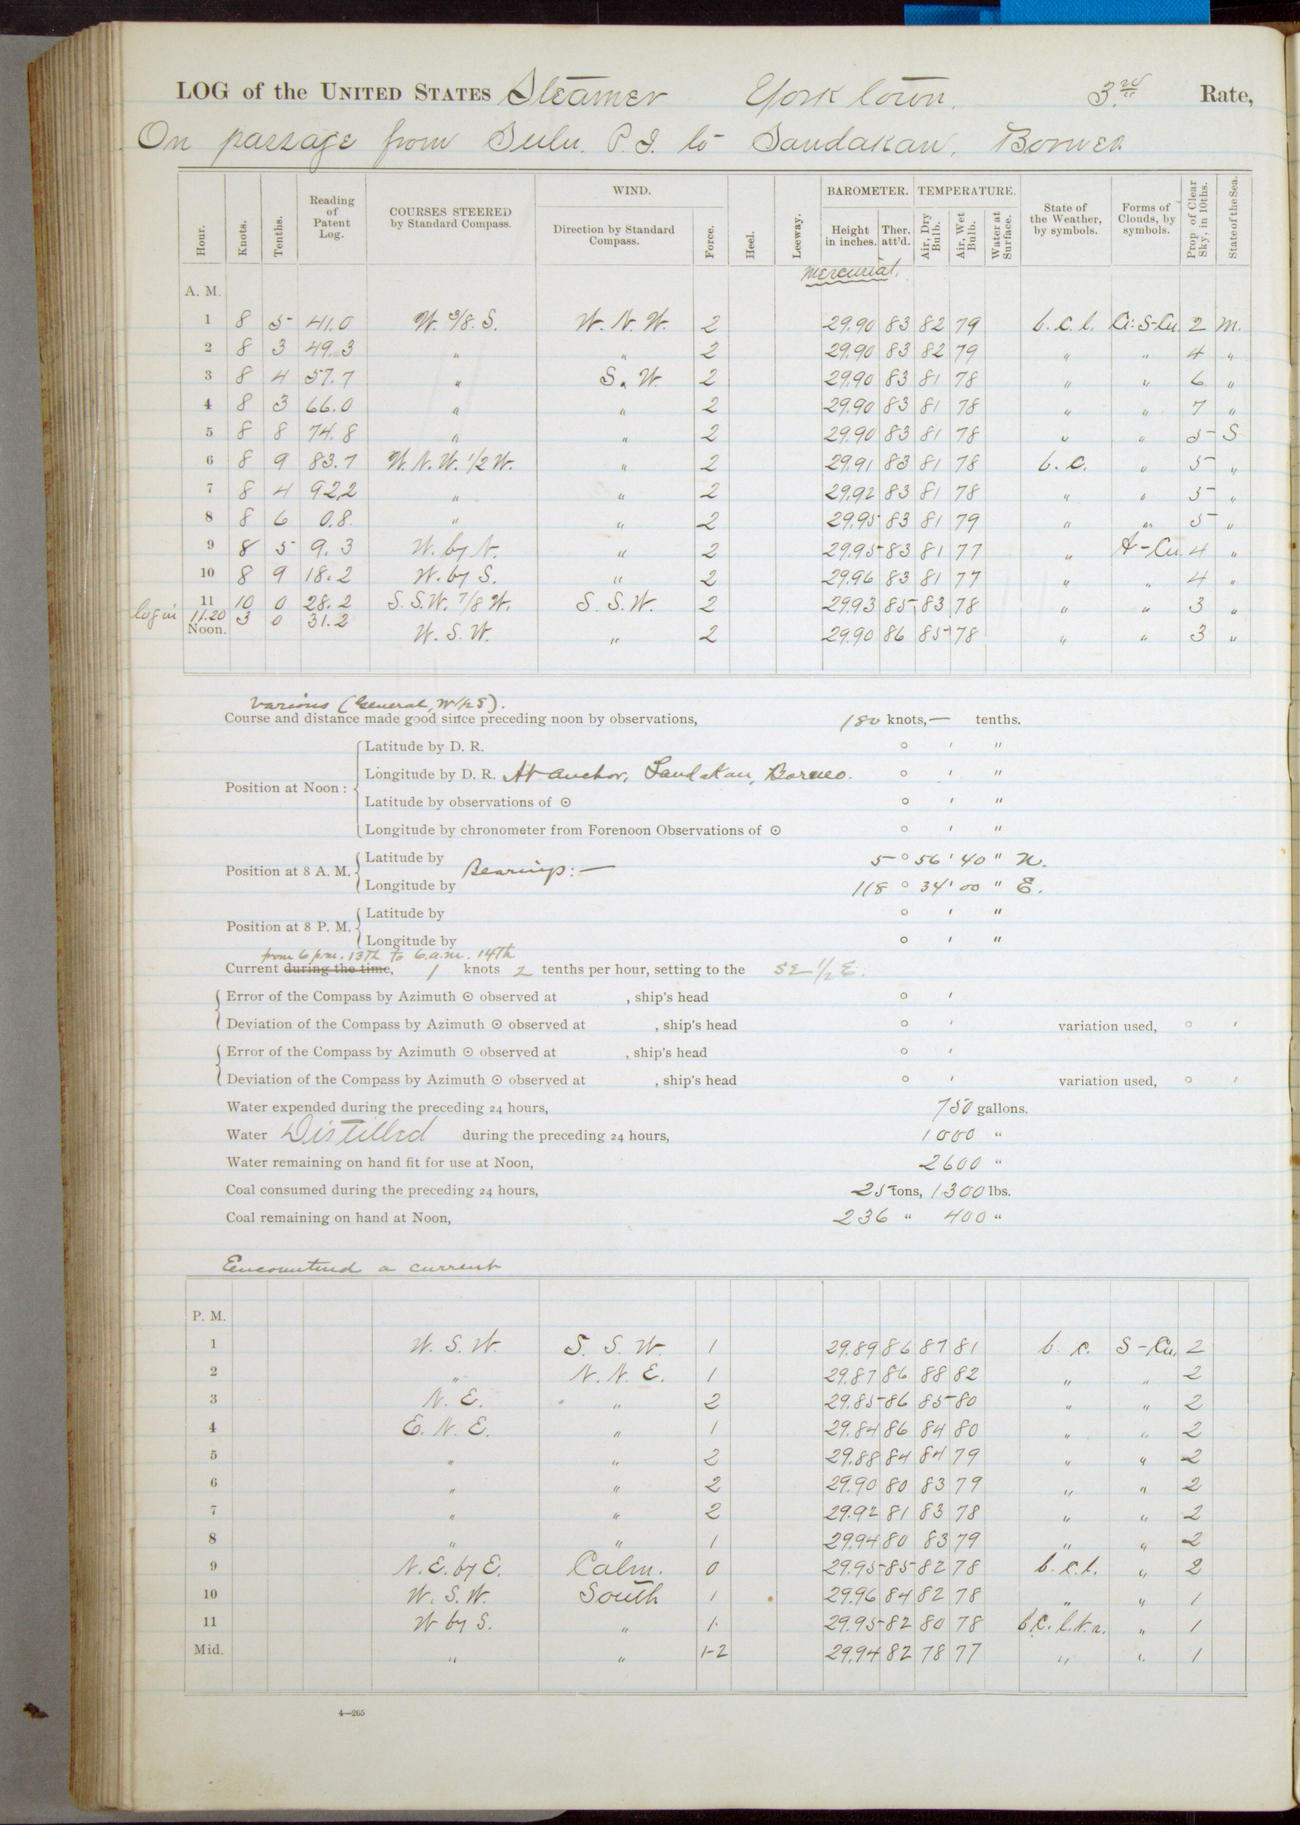 LOG of the UNITED STATES Steamer Yorktown, 3rd Rate,
On passage from Sulu, P.I. to Sandakan, Borneo
Hour. Knots. Tenths. Reading of Patent Log. COURSES STEERED by Standard Compass. WIND. Direction by Standard Compass. Force. Heel. Leeway. BAROMETER. Height in inches. Ther. att'd. TEMPERATURE. Air, Dry Bulb. Air, Wet Bulb. Water at Surface. State of the Weather, by symbols. Forms of Clouds, by symbols. Prop. of Clear Sky, in 10ths. State of the Sea.
mercurial.
A. M.
1 8 5 41.0 W. 3/8. S. W. N. W. 2 29.90 83 82 79 b. c. l. Ci: S-Cu 2 m.
2 8 3 49.3 " " 2 29.90 83 82 79 " " 4 "
3 8 4 57.7 " S. W. 2 29.90 83 81 78 " " 6 "
4 8 3 66.0 " " 2 29.90 83 81 78 " " 7 "
5 8 8 74.8 " " 2 29.90 83 81 78 " " 5 S
6 8 9 83.7 W. N. W. 1/2 W. " 2 29.91 83 81 78 b. c. " 5 "
7 8 4 92.2 " " 2 29.92 83 81 78 " " 5 "
8 8 6 0.8. " " 2 29.95 83 81 79 " " 5 "
9 8 5 9.3 W. by N. " 2 29.95 83 81 77 " A-Cu. 4 "
10 8 9 18.2 W. by S. " 2 29.96 83 81 77 " " 4 "
11 10 0 28.2 S. S. W. 7/8 W. S. S. W. 2 29.93 85 83 78 " " 3 "
log in 11.20 3 0 31.2
Noon. W. S. W. " 2 29.90 86 85 78 " " 3 "
Various (General, W 1/2 S).
Course and distance made good since preceding noon by observations, 180 knots, — tenths.
Position at Noon:
Latitude by D. R. ° ′ ″
Longitude by D. R. At anchor, Sandakan, Borneo. ° ′ ″
Latitude by observations of ☉ ° ′ ″
Longitude by chronometer from Forenoon Observations of ☉ ° ′ ″
Position at 8 A. M. Latitude by Bearings:— 5 ° 56 ′ 40 ″ N.
Longitude by 118 ° 34 ′ 00 ″ E.
Position at 8 P. M. Latitude by ° ′ ″
Longitude by ° ′ ″
from 6 p.m. 13th to 6 a.m. 14th
Current during the time, 1 knots 2 tenths per hour, setting to the SE 1/2 E.
Error of the Compass by Azimuth ☉ observed at , ship's head ° ′
Deviation of the Compass by Azimuth ☉ observed at , ship's head ° ′ variation used, ° ′
Error of the Compass by Azimuth ☉ observed at , ship's head ° ′
Deviation of the Compass by Azimuth ☉ observed at , ship's head ° ′ variation used, ° ′
Water expended during the preceding 24 hours, 750 gallons.
Water Distilled during the preceding 24 hours, 1000 "
Water remaining on hand fit for use at Noon, 2600 "
Coal consumed during the preceding 24 hours, 25 tons, 1300 lbs.
Coal remaining on hand at Noon, 236 " 400 "
Encountered a current
P. M.
1 W. S. W. S. S. W. 1 29.89 86 87 81 b. c. S-Cu. 2
2 " N. N. E. 1 29.87 86 88 82 " " 2
3 N. E. " 2 29.85 86 85 80 " " 2
4 E. N. E. " 1 29.84 86 84 80 " " 2
5 " " 2 29.88 84 84 79 " " 2
6 " " 2 29.90 80 83 79 " " 2
7 " " 2 29.92 81 83 78 " " 2
8 " " 1 29.94 80 83 79 " " 2
9 N. E. by E. Calm. 0 29.95 85 82 78 b. c. l. " 2
10 W. S. W. South 1 29.96 84 82 78 " " 1
11 W by S. " 1 29.95 82 80 78 b. c. l. t. r. " 1
Mid. " " 1-2 29.94 82 78 77 " " 1
4—265